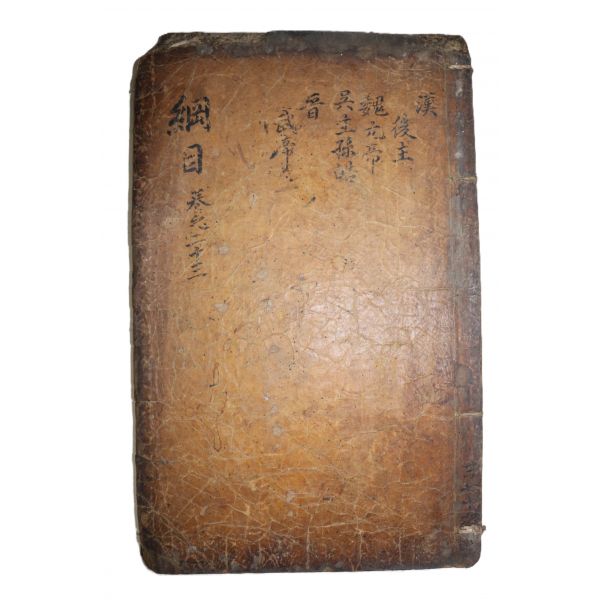 漢
後主
魏元帝
吳主孫皓
晉
武帝
綱目
卷之二十三